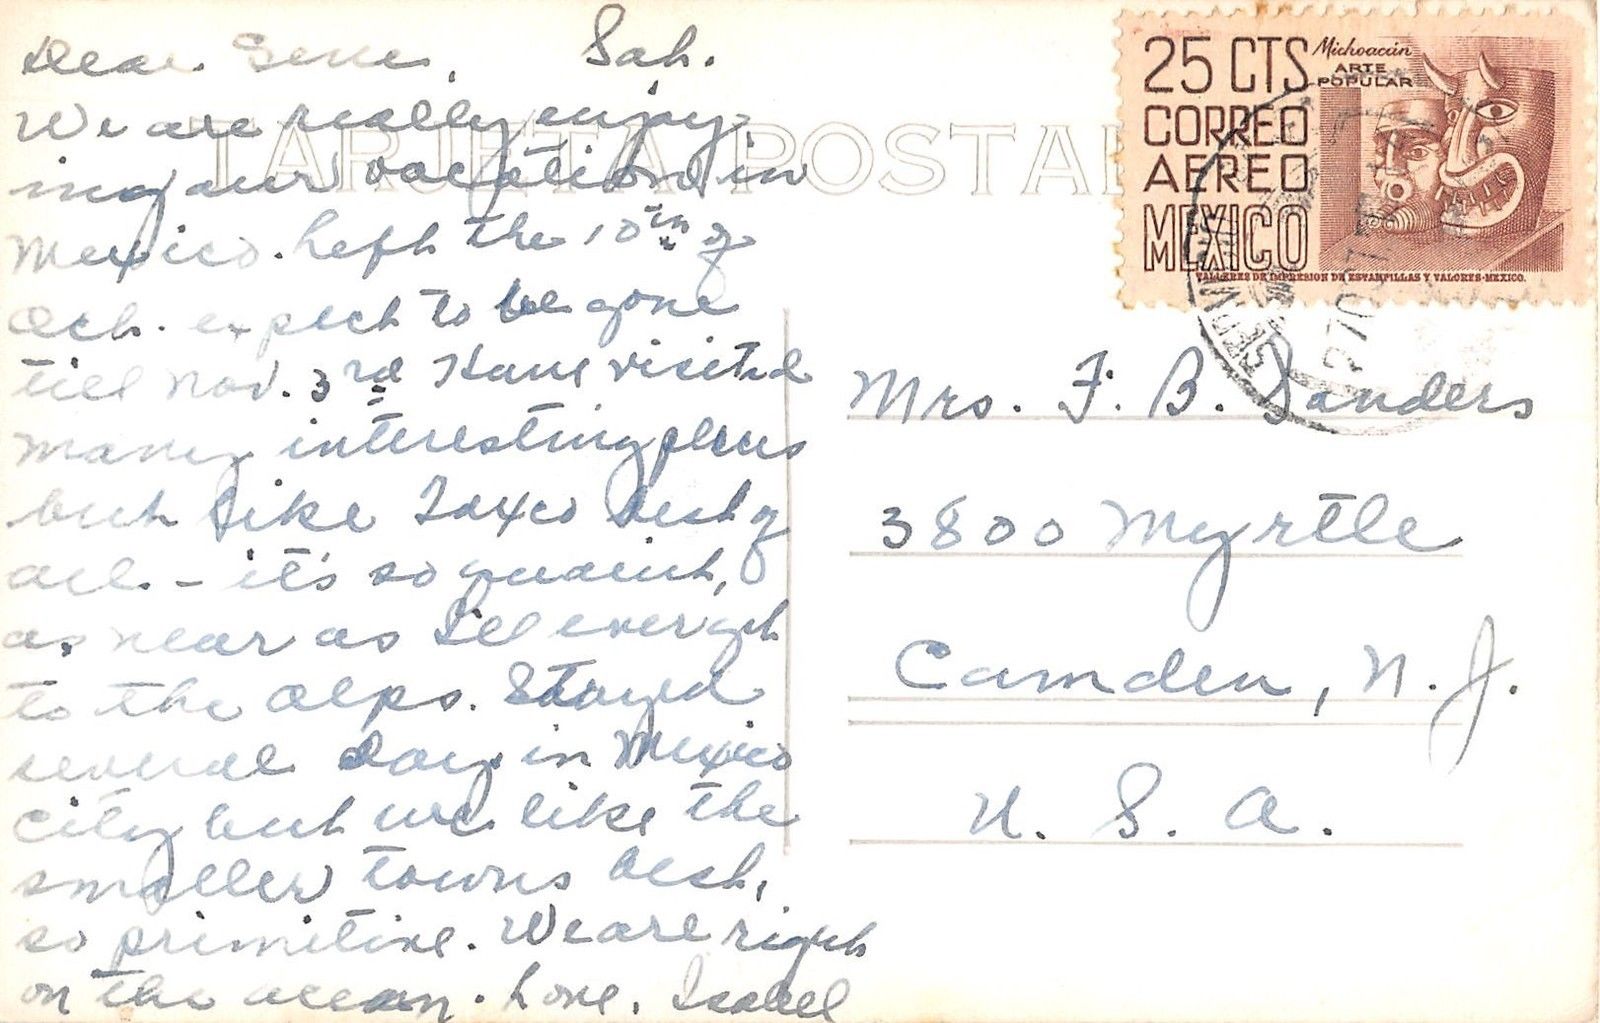 Dear Gene, Sat.
We are really enjoy-
ing our vacation in
Mexico. Left the 10th of
Oct. expect to be gone
till Nov. 3rd Have visited
many interesting places
but like Taxco best of
all - it's so quaint,
as near as I'll ever get
to the Alps. Stayed
several days in Mexico
City but we like the
smaller towns best,
so primitive. We are right
on the ocean. Love, Isabel
TARJETA POSTAL
25 CTS
CORREO
AEREO
MEXICO
Michoacán
ARTE
POPULAR
TALLERES DE IMPRESION DE ESTAMPILLAS Y VALORES-MEXICO.
Mrs. F. B. Sanders
3800 Myrtle
Camden, N. J.
U. S. A.